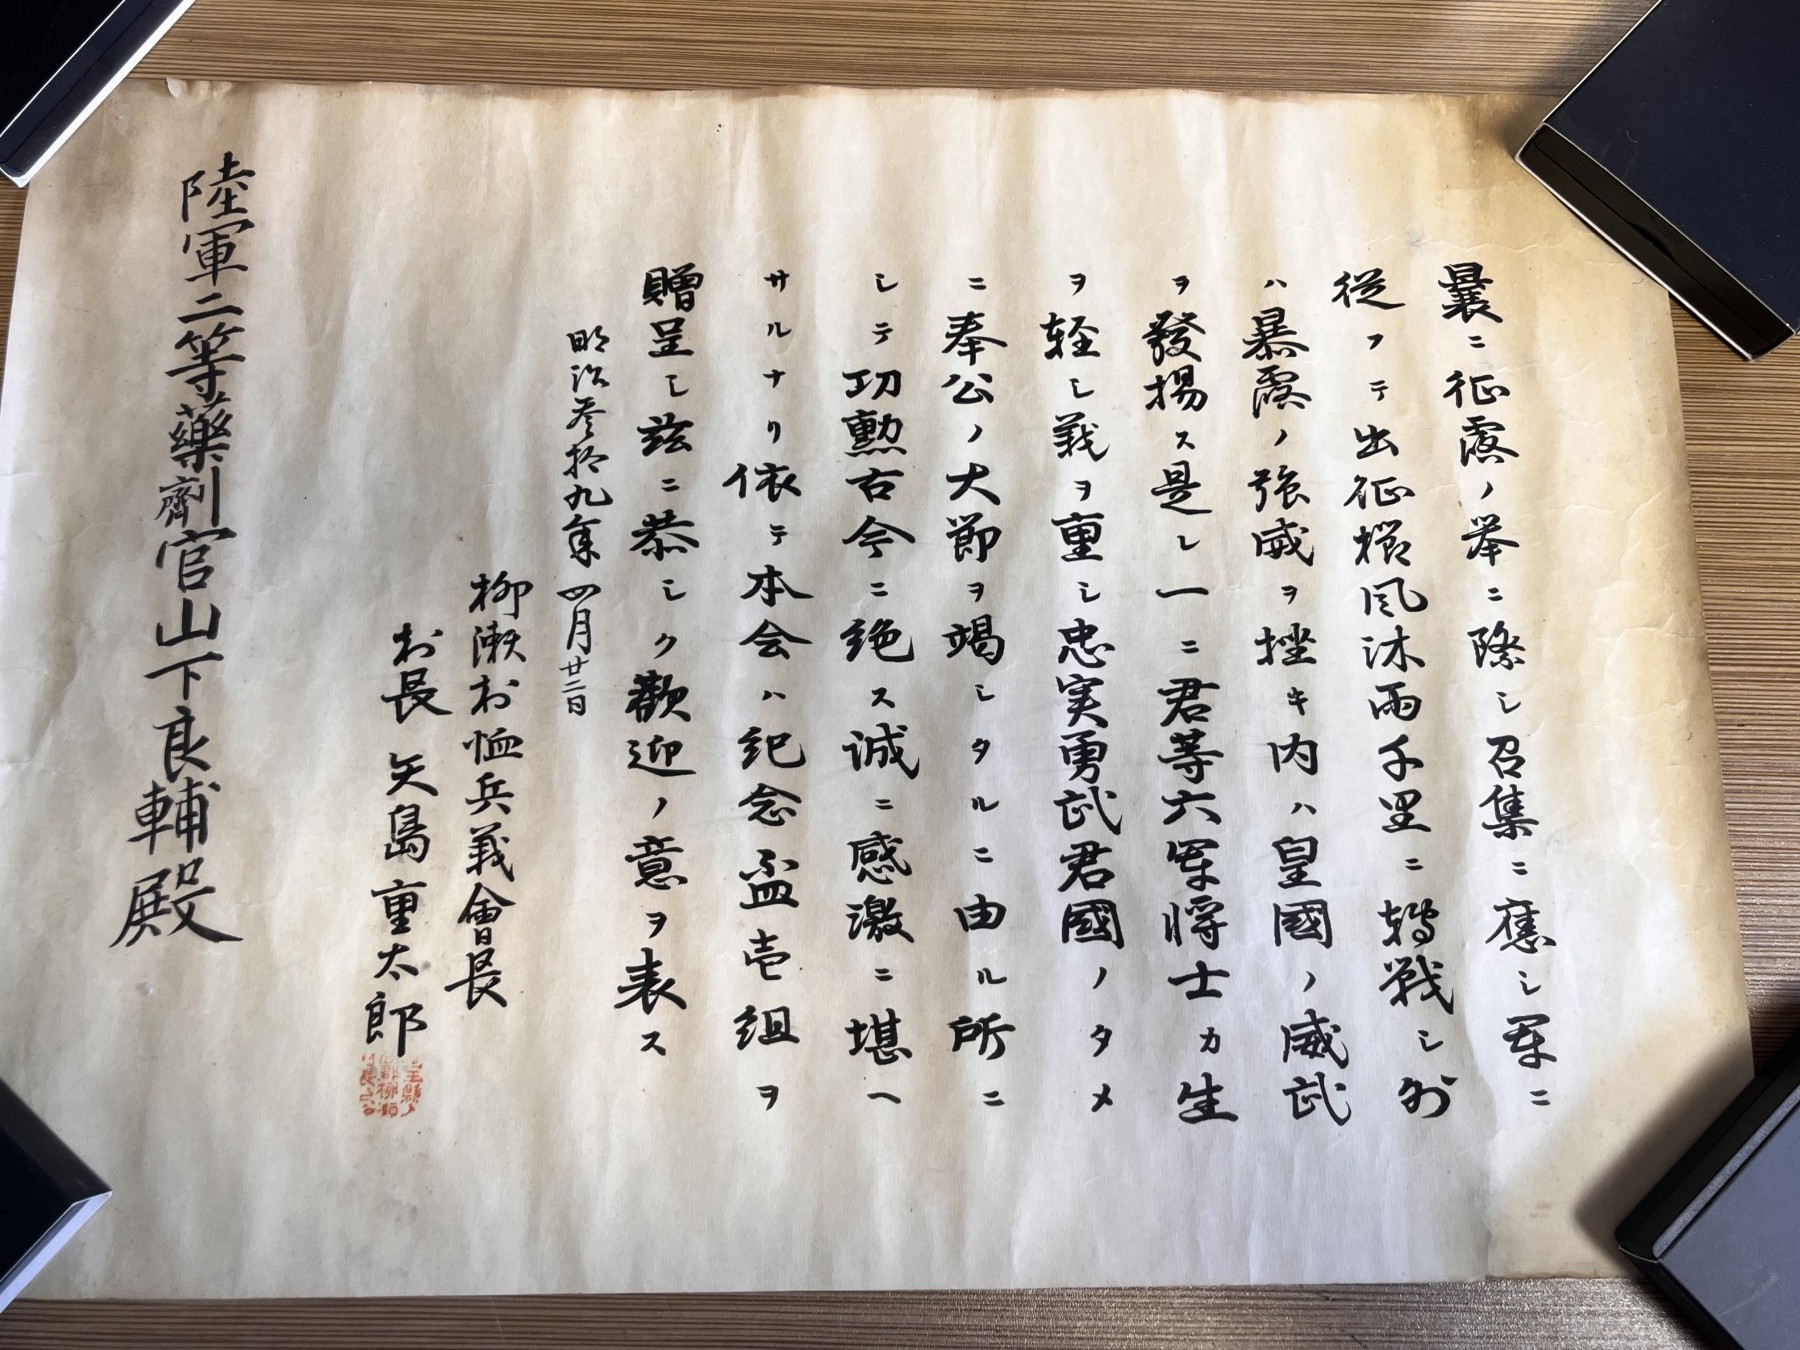 曩ニ征露ノ挙ニ際シ召集ニ應シ軍ニ
従フテ出征櫛風沐雨千里ニ轉戦シ外
ハ暴露ノ強威ヲ挫キ内ハ皇國ノ威武
ヲ發揚ス是レ一ニ君等六軍将士カ生
ヲ軽シ義ヲ重シ忠実勇武君國ノタメ
ニ奉公ノ大節ヲ竭シタルニ由ル所ニ
シテ功勲古今ニ絶ス誠ニ感激ニ堪ヘ
サルナリ依テ本会ハ紀念盃壱組ヲ
贈呈シ茲ニ恭シク歡迎ノ意ヲ表ス
明治参拾九年四月廿二日
柳瀬村恤兵義會長
村長 矢島重太郎
陸軍二等藥劑官山下良輔殿